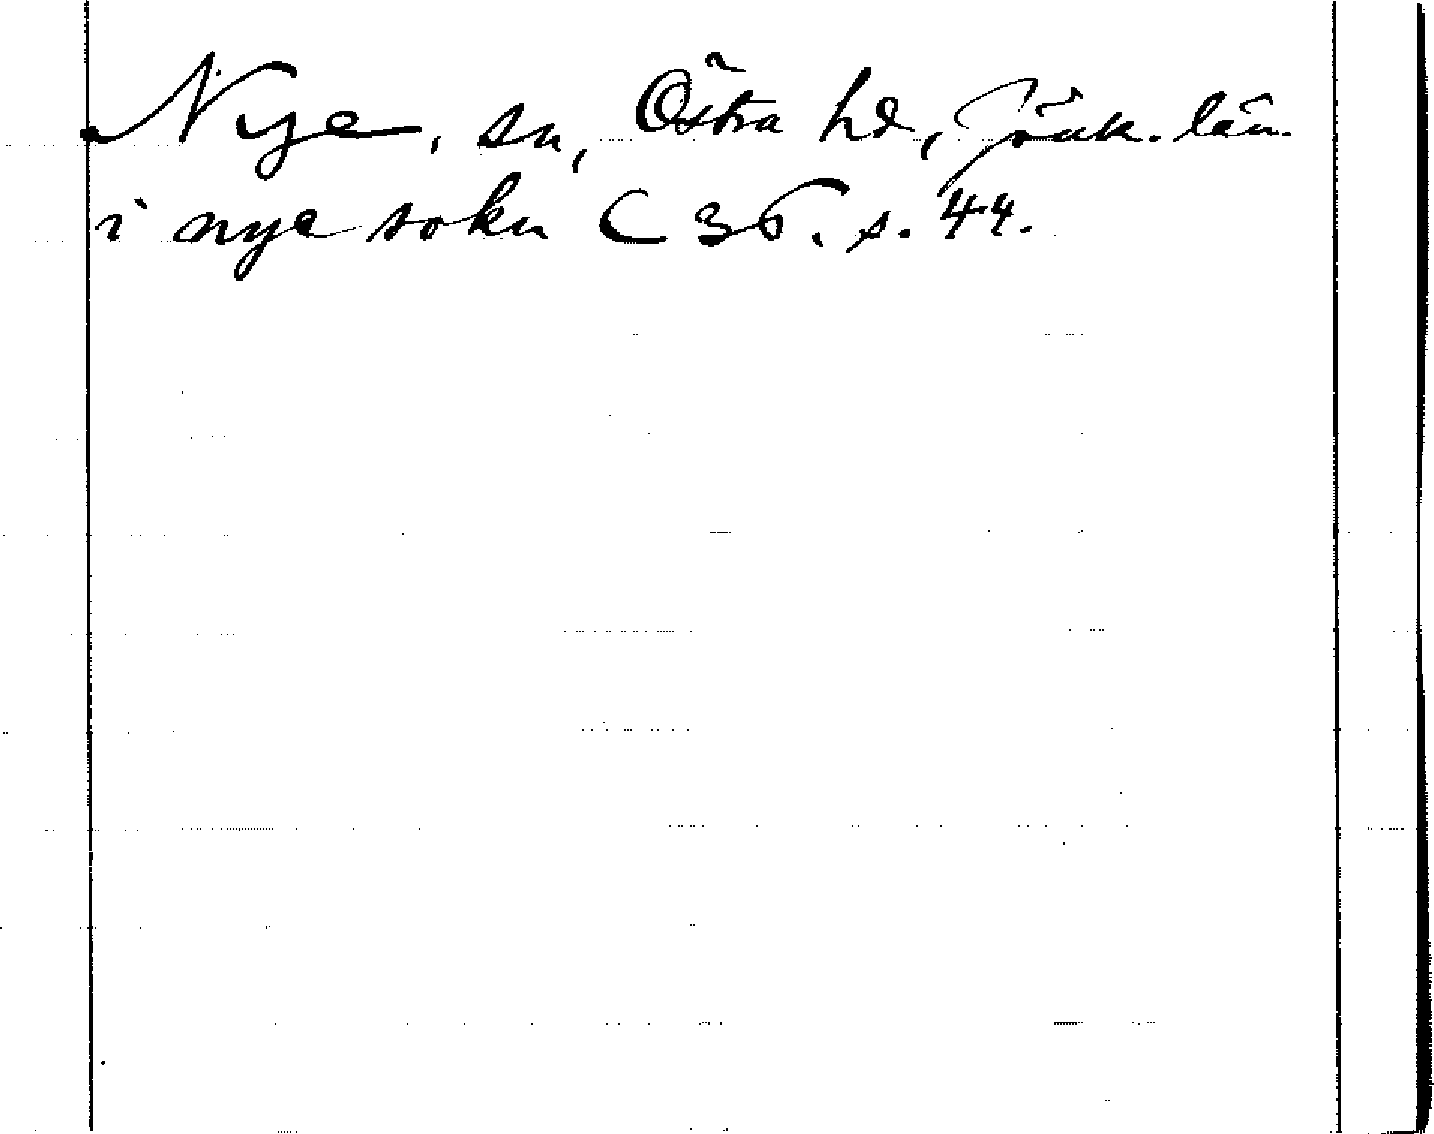 Nye, sn, Östra hd, Jönk. län.
i nye sokn C 36. s. 44.